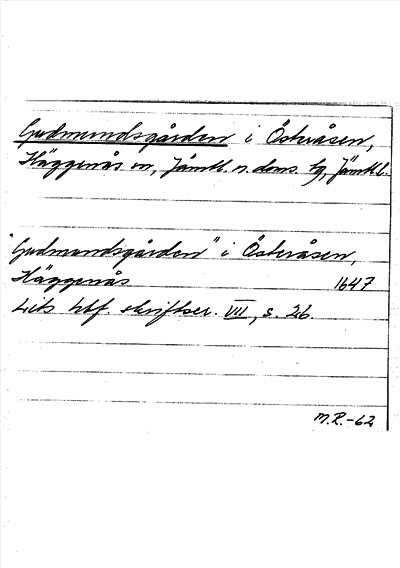 Gudmundsgården i Österåsen,
Häggenås sn, Jämtl. n. doms. tg, Jämtl.
"Gudmundsgården" i Österåsen,
Häggenås 1647
Lits hbf. skriftser. VII, s. 26.
M.R.-62